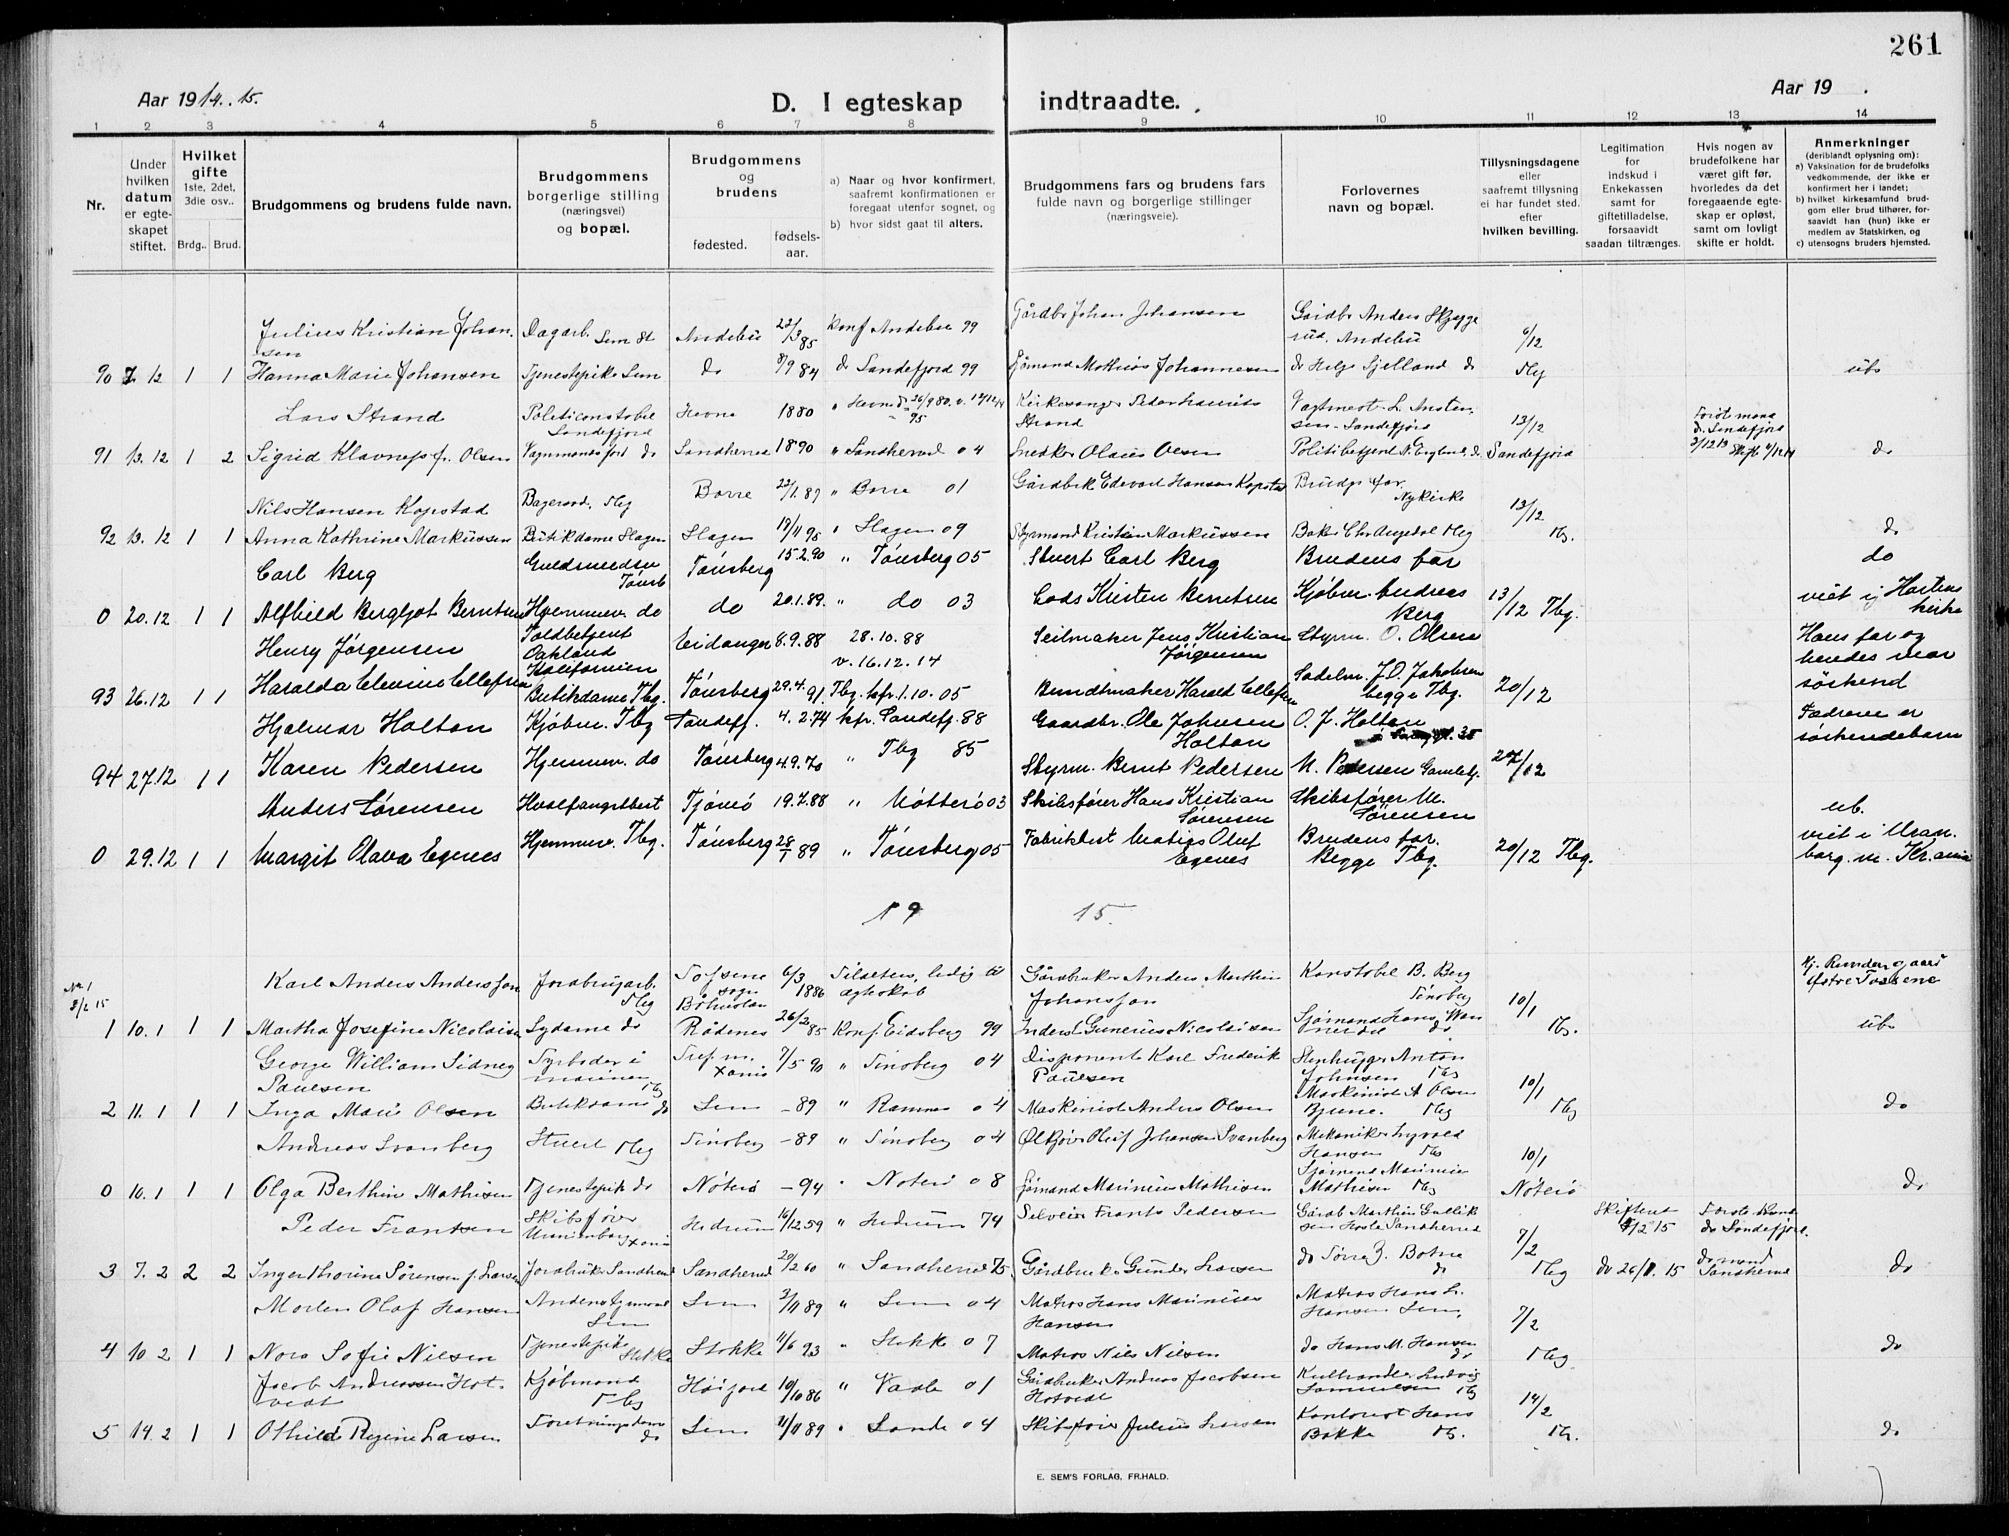 261
Aar 1914. 15.
D. I egteskap indtraadte.
Aar 19 .
1 2 3 4 5 6 7 8 9 10 11 12 13 14
Nr.
Under hvilken datum er egteskapet stiftet.
Hvilket gifte
1ste, 2det, 3die osv..
Brdg.. Brud.
Brudgommens og brudens fulde navn.
Brudgommens borgerlige stilling (næringsvei) og bopæl.
Brudgommens og brudens
fødested. fødsels-aar.
a) Naar og hvor konfirmert, saafremt konfirmationen er foregaat utenfor sognet, og
b) hvor sidst gaat til alters.
Brudgommens fars og brudens fars fulde navn og borgerlige stillinger (næringsveie).
Forlovernes navn og bopæl.
Tillysningsdagene eller saafremt tillysning ei har fundet sted, efter hvilken bevilling.
Legitimation for indskud i Enkekassen samt for giftetilladelse, forsaavidt saadan tiltrænges.
Hvis nogen av brudefolkene har været gift før, hvorledes da det foregaaende egteskap er opløst, samt om lovligt skifte er holdt.
Anmerkninger
(deriblandt oplysning om):
a) Vaksination for de brudefolks vedkommende, der ikke er konfirmert her i landet;
b) hvilket kirkesamfund brudgom eller brud tilhører, forsaavidt han (hun) ikke er medlem av Statskirken, og
c) utensogns bruders hjemsted.
Julius Kristian Johansen Dagarb. Sem St Andebu 22/3 85 konf Andebu 99 Gårdbr Johan Johansen Gårdbr Anders Skjegge rud. Andebu 6/12
90 7 12 1 1 Hanna Marie Johansen Tjenestepike Sem do 8/9 84 do Sandefjord 99 Sjömand Mathias Johannesen do Helge Sjelland do Tbg ubs
Lars Strand Politiconstabel Sandefjord Hevne 1880 " Hevne Kirkesanger Peder Strand Sandefjord 13/12
91 13. 12 1 2 Sigrid Klavnes f. Olsen do Sandherred 1890 " Sandherred 04 Snedker Olaus Olsen Politibetjent do Sandefjord do
Nils Hansen Kopstad Bagersv. Tbg Borre 22/1. 87 " Borre 01 Gårdbrk Edevard Hansen Kopstad Brudgs far Nykirke 13/12
92 13. 12 1 1 Anna Kathrine Markussen Butikdame Slagen Slagen 18/11 95 " Slagen 09 Styrmand Kristian Markussen Baker Chr Augedal Tbg Tbg. do
Carl Berg Guldsmedsv Tönsb Tönsberg 15.2.90 " Tönsberg 05 Stuert Carl Berg Brudens far do
0 20.12 1 1 Alfhild Bergljot Berntsen Hjemmev. do do 20.1.89. " do 03 Lods Kristen Berntsen Kjöbm. Andreas Berg 13/12 Tbg. viet ij Hortens kirke
Henry Jørgensen Toldbetjent Oakland Kalifornien Eidanger 8.9.88 28.10.88 v. 16.12.14 Seilmaker Jens Kristian Jørgensen Styrm. O. Olsen Hans far og hendes mor söskend
93 26.12 1 1 Haralda Elevine Ellefsen Butikdame Tbg. Tönsberg 29.4.91. Tbg. kfr. 1.10.05 Bundtmaker Harald Ellefsen Sadelm. J.D. Jakobsen begge Tbg. 20/12
Hjalmar Holtan Kjöbm. Tbg Sandefj. 4. 2.74 kfr. Sandefj. 88 Gaardbr. Ole Johnsen Holtan O. J. Holtan Fædrene er söskendebarn
94 27.12 1 1 Karen Pedersen Hjemmev. do Tönsberg 4.9.70 " Tbg 85 Styrm. Bernt Pedersen M. Pedersen 27/12
Anders Sørensen Hvalfangstbest Tjömö 19.7.88 " Nötterö 03 Skibsfører Hans Kristian Sørensen Skibsfører M. Sørensen ub.
0 29.12 1 1 Margit Olava Egenes Hjemmev. Tbg. Tönsberg 28/1 89 " Tönsberg 05 Fabrikbest Matias Oluf Egenes Brudens far. Begge Tbg. 20/12 Tbg. viet i Uranborg m. Kr.ania
19 15.
Nr 1 8/2 15
Karl Anders Andersson Jordbrugarb. Tbg sogn Båhuslän 6/3 1886 ledig til ægteskab Gårdbruker Anders Marthin Johansson Konstabel B. Berg Tönsberg 10/1
1 10. 1 1 1 Martha Josefine Nicolaisen Sydame do Rödenes 26/2 85 Konf. Eidsberg 99 Inderst Gunerius Nicolaisen Sjömand Hans do Tbg. ubs
George William Sidney Paulsen Fyrböder i marinen Tbg 7/5 90 " Tönsberg 04 Disponent Karl Frederik Paulsen Stenhugger Anton Johnsen Tbg 10/1
2 11. 1 1 1 Inga Marie Olsen Butikdame do Sem – 89 " Ramnes 04 Maskinist Anders Olsen Maskinist A Olsen Bjune. Tbg Tbg do
Andreas Svanberg Stuert Tbg Tönsberg – 89 " Tönsberg 04 Oluf Johansen Svanberg Mekaniker Hansen Tbg 10/1
0 10. 1 1 1 Olga Berthine Mathisen Tjenestepike do Nöterö – 94 " Nöterö 08 Sjömand Marinius Mathisen Sjömand Marinius Mathisen Tbg Nöterö do
Peder Frantsen Skibsfører Uranienborg Xania Hedrum 16/12 59 " Hedrum 74 Selveier Frants Pedersen Gårdb Marthin Gullik sen Sandherred 7/2 Skifteret 4/2 15 Første do Sandefjord.
3 7. 2 2 2 Inger Thorine Sørensen f. Larsen Jordbruker Sandherred Sandherred 29/2 60 " Sandherred 75 Gårdbruker Gunder Larsen do do Tbg do 26/1. 15 do mand Sandherred do
Morten Olaf Hansen Sem Sem 3/11 89 " Sem 04 Matros Hans Marinius Hansen Matros Hans L. Hansen Sem, 7/2
4 10. 2 1 1 Nora Sofie Nilsen Tjenestepike Stokke Stokke 11/6 93 " Stokke 07 Matros Nils Nilsen do Hans M. Hansen do Tbg do
Jacob Andreassen Hotvedt Kjöbmand Tbg Höijord 10/10 86 " Vaale 01 Gårdbruker Andreas Jacobsen Hotvedt Kulhandler Ludvig Samuelsen Tbg 14/2
5 14. 2 1 1 Othilde Regine Larsen Forretningsdame do Sem 11/11 89 " Sande 04 Skibsfører Julius Larsen Kontorist Hans Bakke Tbg. Tbg. do
E. SEM'S FORLAG, FR.HALD.